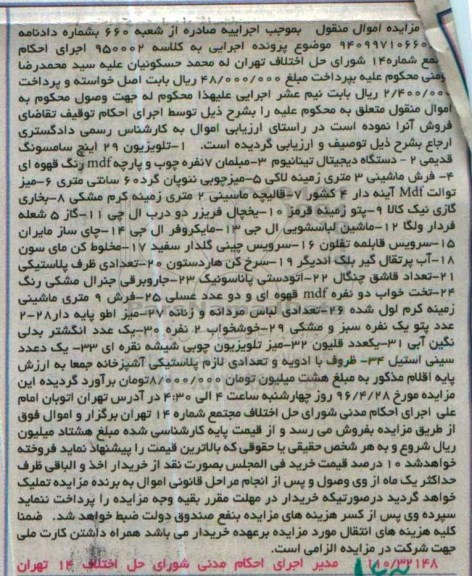 مزایده اموال منقول بموجب اجراییه صادره از شعبه ۶۶۰ بشماره دادنامه
۹۴۰۹۹۷۱۰۶۶۰ موضوع پرونده اجرایی به کلاسه ۹۵۰۰۰۲ اجرای احکام
مجتمع شماره۱۴ شورای حل اختلاف تهران له محمد حسکوئیان علیه سید محمدرضا
محکوم علیه بپرداخت مبلغ ۴۸/۰۰۰/۰۰۰ ریال بابت اصل خواسته و پرداخت
۲/۴۰۰/۰۰۰ ریال بابت نیم عشر اجرایی علیهذا محکوم له جهت وصول محکوم به
اموال منقول متعلق به محکوم علیه را بشرح ذیل توسط اجرای احکام توقیف تقاضای
فروش آنرا نموده است در راستای ارزیابی اموال به کارشناس رسمی دادگستری
ارجاع بشرح ذیل توصیف و ارزیابی گردیده است. ۱-تلویزیون ۲۹ اینچ سامسونگ
قدیمی ۲- دستگاه دیجیتال تیتانیوم ۳-مبلمان ۷نفره چوب و پارچه mdf رنگ قهوه ای
۴- فرش ماشینی ۳ متری زمینه لاکی ۵-میزچوبی نئوپان گرد۶۰ سانتی متری ۶-میز
توالت Mdf آینه دار ۴ کشور ۷-قالیچه ماسینی ۲ متری زمینه کرم مشکی ۸-بخاری
گازی نیک کالا ۹-پتو زمینه قرمز ۱۰-یخچال فریزر دو درب ال جی ۱۱-گاز ۵ شعله
فردار ولگا ۱۲-ماشین لباسشویی ال جی ۱۳-مایکروفر ال جی ۱۴-چای ساز مایران
۱۵-سرویس قابلمه تفلون ۱۶-سرویس چینی گلدار سفید ۱۷-مخلوط کن مای سون
۱۸-آب پرتقال گیر بلک اندیگر ۱۹-سرخ کن هاردستون ۲۰-تعدادی ظرف پلاستیکی
۲۱-تعداد قاشق چنگال ۲۲-اتودستی پاناسونیک ۲۳-جاروبرقی جنرال مشکی رنگ
۲۴-تخت خواب دو نفره mdf قهوه ای و دو عدد عسلی ۲۵-فرش ۹ متری ماشینی
زمینه کرم لول شده ۲۶-تعدادی لباس مردانه و زنانه ۲۷-میز اطو پایه دار۲۸-۲
عدد پتو یک نفره سبز و مشکی ۲۹-خوشخواب ۲ نفره ۳۰-یک عدد انگشتر بدلی
نگین آبی ۳۱-یکعدد قلیون ۳۲-میز تلویزیون چوبی شیشه نقره ای ۳۳- یک دعدد
سینی استیل ۳۴- ظروف با ادویه و تعدادی لازم پلاستیکی آشپزخانه جمعا به ارزش
پایه اقلام مذکور به مبلغ هشت میلیون تومان ۸/۰۰۰/۰۰۰تومان برآورد گردیده این
مزایده مورخ ۹۶/۴/۲۸ روز چهارشنبه ساعت ۴ الی ۴:۳۰ در آدرس تهران اتوبان امام
علی اجرای احکام مدنی شورای حل اختلاف مجتمع شماره ۱۴ تهران برگزار و اموال فوق
از طریق مزایده بفروش می رسد و از قیمت پایه کارشناسی شده مبلغ هشتاد میلیون
ریال شروع و به هر شخص حقیقی یا حقوقی که بالاترین قیمت را پیشنهاد نماید فروخته
خواهدشد ۱۰ درصد قیمت خرید فی المجلس بصورت نقد از خریدار اخذ و الباقی ظرف
حداکثر یک ماه از وی وصول و پس از انجام مراحل قانونی اموال به برنده مزایده تملیک
خواهد گردید درصورتیکه خریدار در مهلت مقرر بقیه وجه مزایده را پرداخت ننماید
سپرده وی پس از کسر هزینه های مزایده بنفع صندوق دولت ضبط خواهد شد. ضمنا
کلیه هزینه های انتقال مورد مزایده برعهده خریدار می باشد همراه داشتن کارت ملی
جهت شرکت در مزایده الزامی است.
۱۱۰/۳۲۱۴۸ مدیر اجرای احکام مدنی شورای حل اختلاف ۱۴ تهران